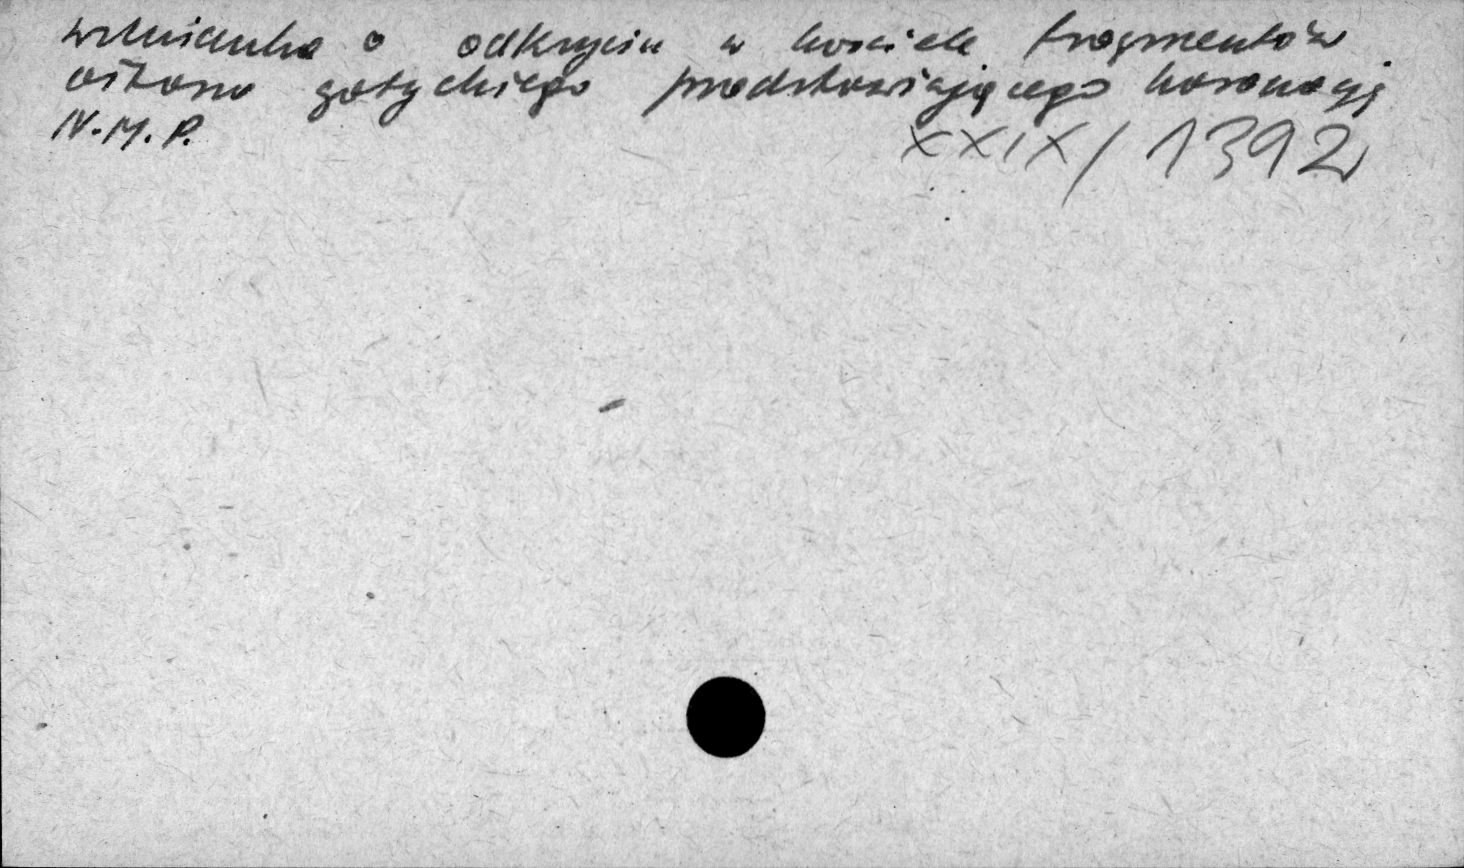 wzmianka o odkryciu w kościele fragmentów
ołtarza gotyckiego przedstawiającego koronację
N.M.P.
XXIX/1392